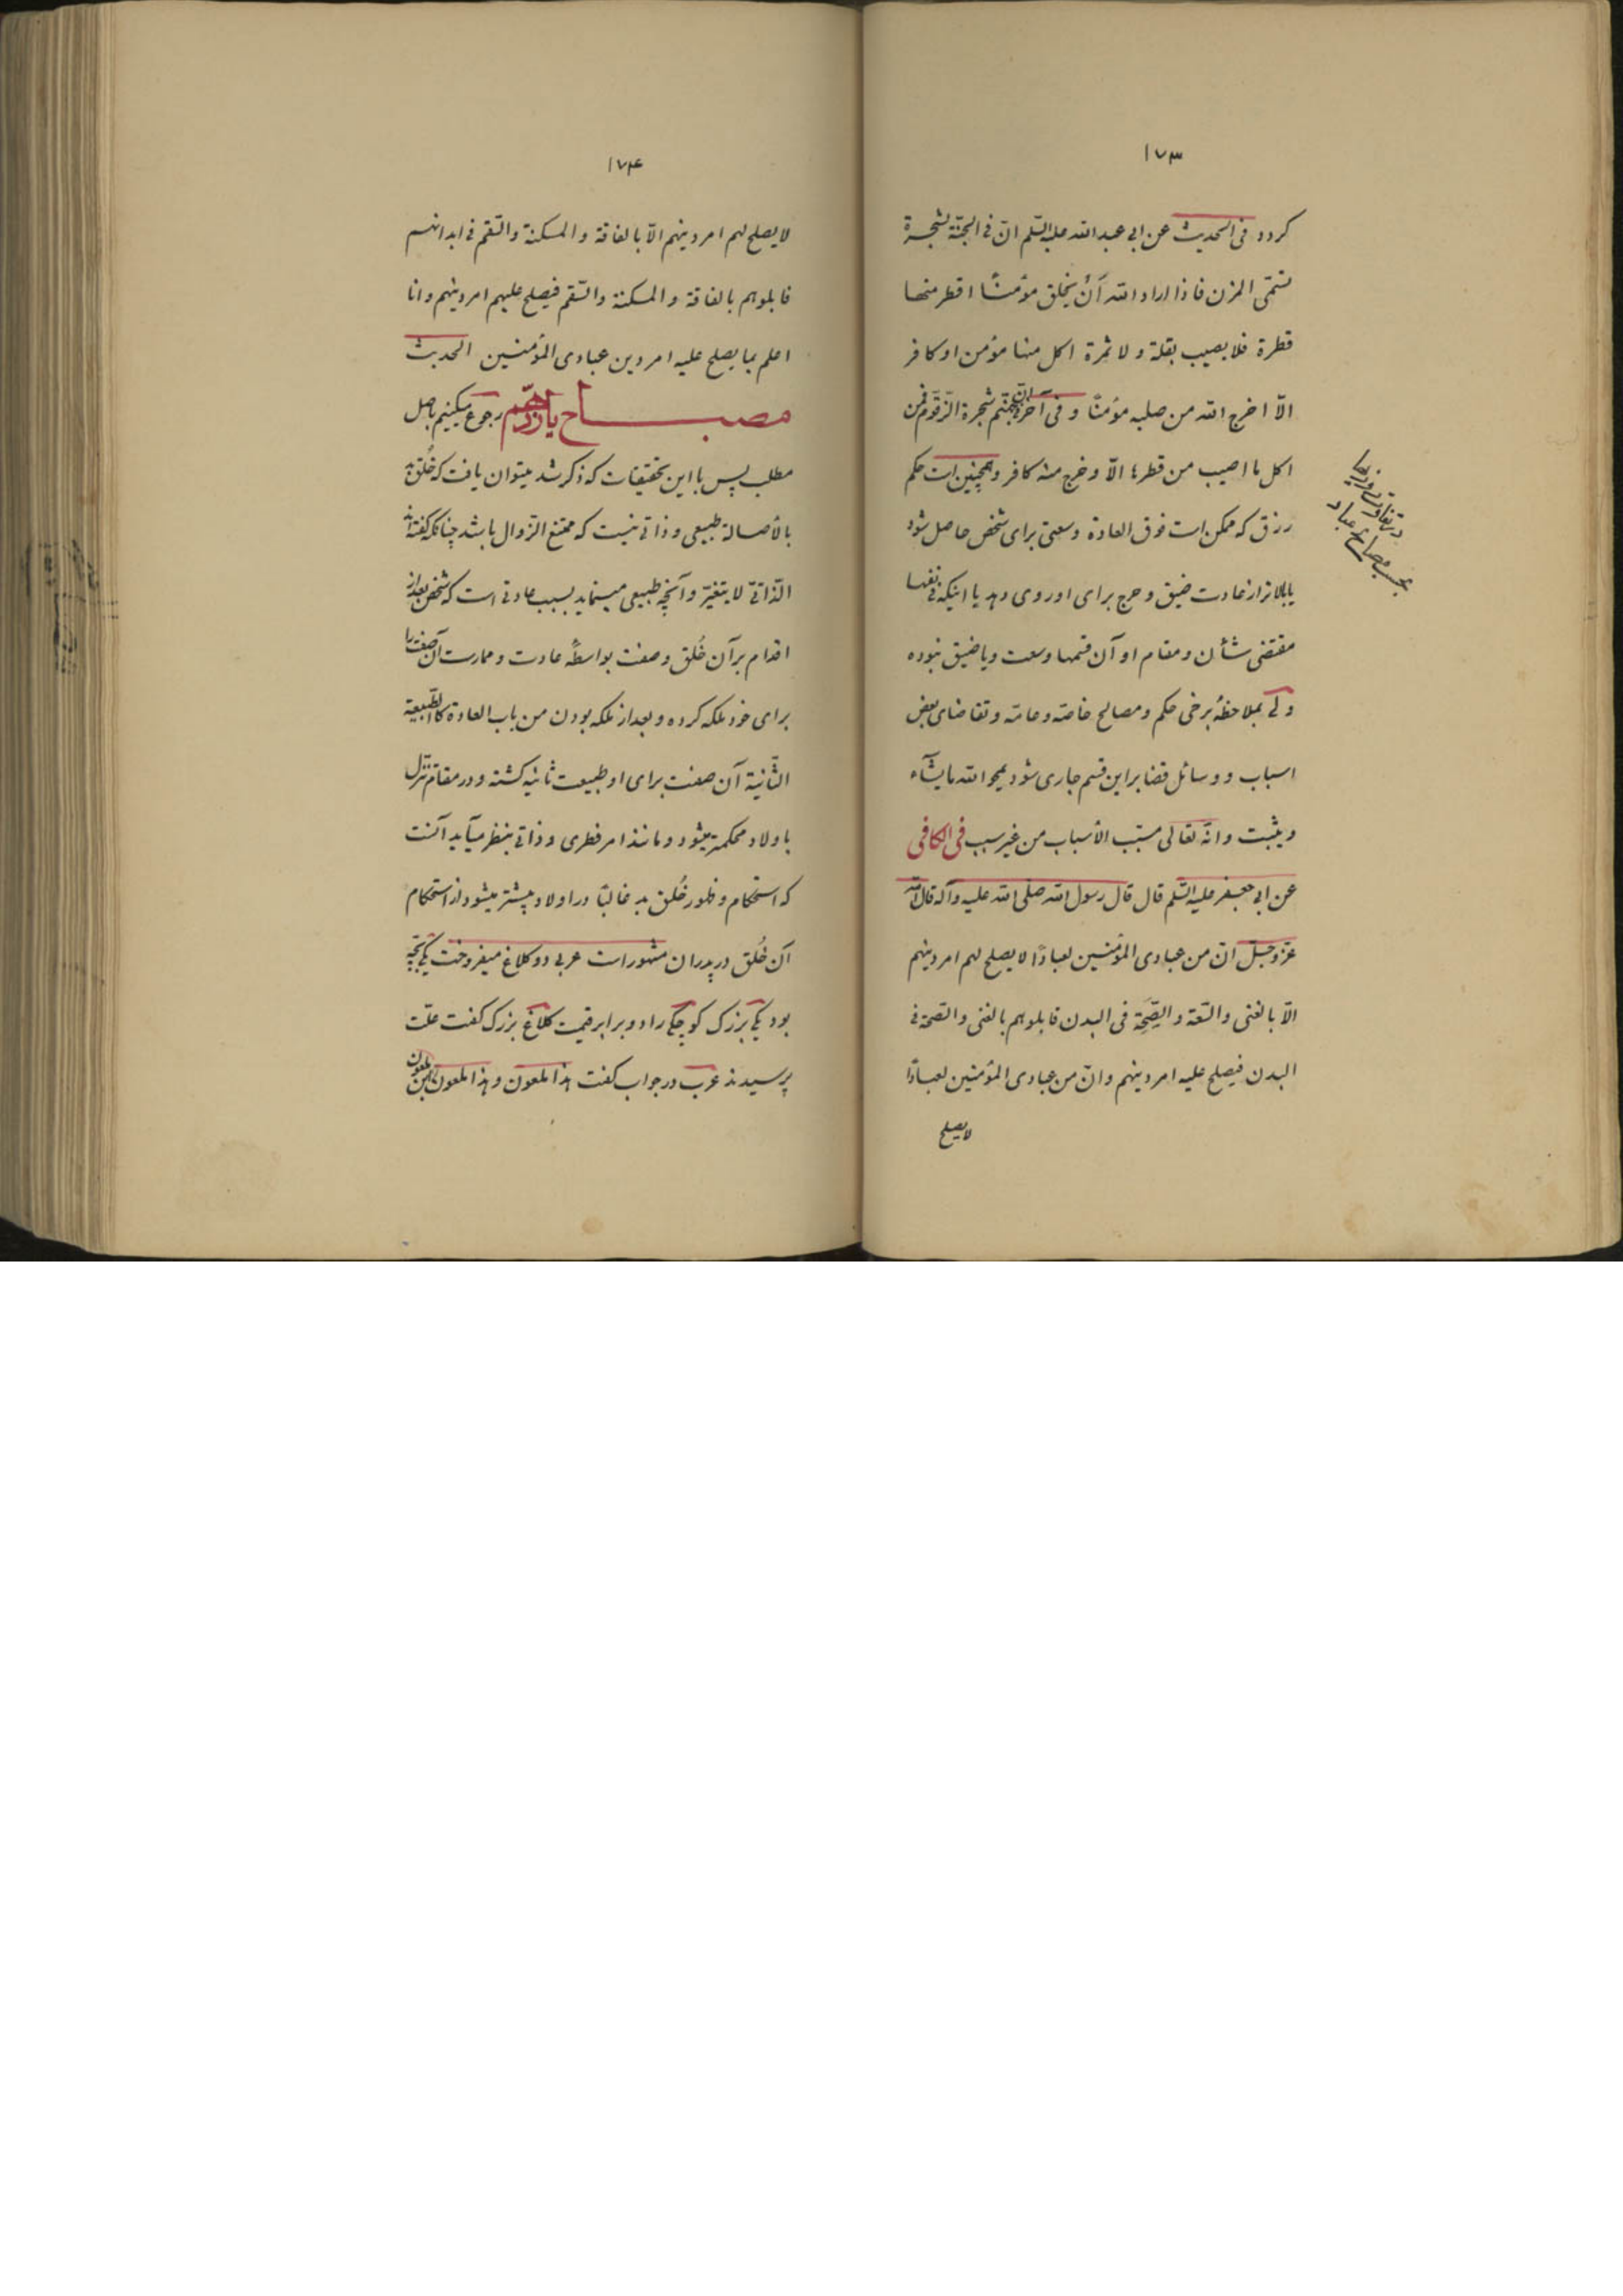 ١٧٣
كردد فى الحديث عن ابى عبد الله عليه السّلم انّ فى الجنّة لشجرة
تسمّى المزن فاذا اراد الله أن يخلق مؤمنًا اقطر منها
قطرة فلا يصيب بقلة ولا ثمرة اكل منها مؤمن او كافر
الّا اخرج الله من صلبه مؤمنًا و فى آخر انّ فى جهنّم شجرة الزّقّوم فمن
اكل ما اصيب من قطرها الّا و خرج منه كافر و همچنين است حكم
رزق كه ممكن است فوق العادة وسعتى براى شخص حاصل شود
يا بالاتر از عادت ضيق و حرج براى او روى دهد يا اينكه فى نفسها
مقتضى شأن و مقام او آن قسمها وسعت و يا ضيق نبوده
ولى بملاحظهٔ برخى حكم و مصالح خاصّه و عامّه و تقاضاى بعض
اسباب و وسائل قضا بر اين قسم جارى شود يمحو الله ما يشآء
و يثبت و انّه تعالى مسبّب الأسباب من غير سبب فى الكافى
عن ابى جعفر عليه السّلم قال قال رسول الله صلى الله عليه و آله قال الله
عزّ و جلّ انّ من عبادى المؤمنين لعبادًا لا يصلح لهم امر دينهم
الّا بالغنى والسّعة و الصّحّة فى البدن فابلوهم بالغنى والصّحة فى
البدن فيصلح عليه امر دينهم و انّ من عبادى المؤمنين لعبادًا
لا يصلح
در تفاوت روزيها
بحسب مصالح عباد
١٧٤
لا يصلح لهم امر دينهم الّا بالفاقة و المسكنة والسّقم فى ابدانهم
فابلوهم بالفاقة و المسكنة والسّقم فيصلح عليهم امر دينهم و انا
اعلم بما يصلح عليه امر دين عبادى المؤمنين الحديث
مصباح يازدهم رجوع ميكنيم باصل
مطلب پس با اين تحقيقات كه ذكر شد ميتوان يافت كه خُلق بد
بالأصالة طبيعى و ذاتى نيست كه ممتنع الزّوال باشد چنانكه گفته‌اند
الذّاتىّ لا يتغيّر و آنچه طبيعى مينمايد بسبب عادتى است كه شخص بعد از
اقدام بر آن خُلق و صفت بواسطهٔ عادت و ممارست آن صفت را
براى خود ملكه كرده و بعد از ملكه بودن من باب العادة كالطّبيعة
الثّانية آن صفت براى او طبيعت ثانيه كشته و در مقام تنزّل
باولاد محكمتر ميشود و مانند امر فطرى و ذاتى بنظر ميآيد آنست
كه استحكام و ظهور خُلق بد غالبًا در اولاد بيشتر ميشود از استحكام
آن خُلق در پدران مشهور است عربى دو كلاغ ميفروخت يكى بچّه
بود يكى بزرك كوچكى را دو برابر قيمت كلاغ بزرك كفت علّت
پرسيدند عرب در جواب كفت هذا ملعون و هذا ملعون ابن ملعون